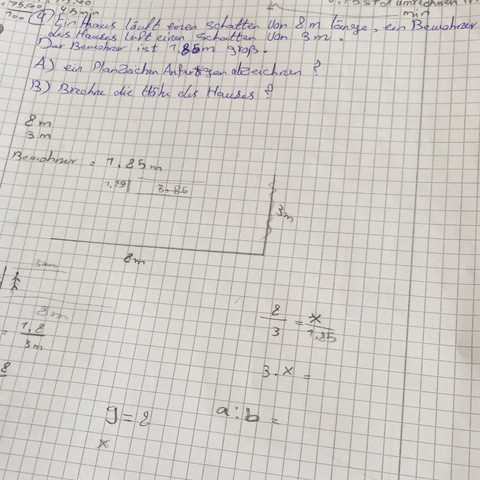 umrechnen
min
4) Ein Haus läuft einen schatten von 8m länge, ein Bewohner
des Hauses läft einen schatten von 3m.
Der Bewohner ist 1,85m groß.
A) ein Planzeichen Anfertigen abzeichnen ?
B) Brechne die Höhe des Hauses ?
8m
3m
Bewohner = 1,85m
1,85
3m
8m
3m
8m
= 1,8
3m
8/3 = x/1,85
3·x =
g=8
a:b =
x